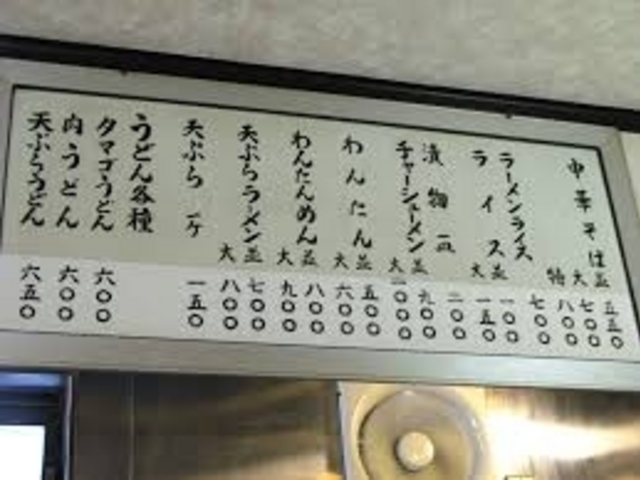 中華そば 並 五五〇
大 七〇〇
特 八〇〇
ラーメンライス 七〇〇
ライス 並 一〇〇
大 一五〇
漬物一皿 二〇〇
チャーシューメン 並 九〇〇
大 一〇〇〇
わんたん 並 五〇〇
大 六〇〇
わんたんめん 並 八〇〇
大 九〇〇
天ぷらラーメン 並 七〇〇
大 八〇〇
天ぷら 一ケ 一五〇
うどん各種
タマゴうどん 六〇〇
肉うどん 六〇〇
天ぷらうどん 六五〇